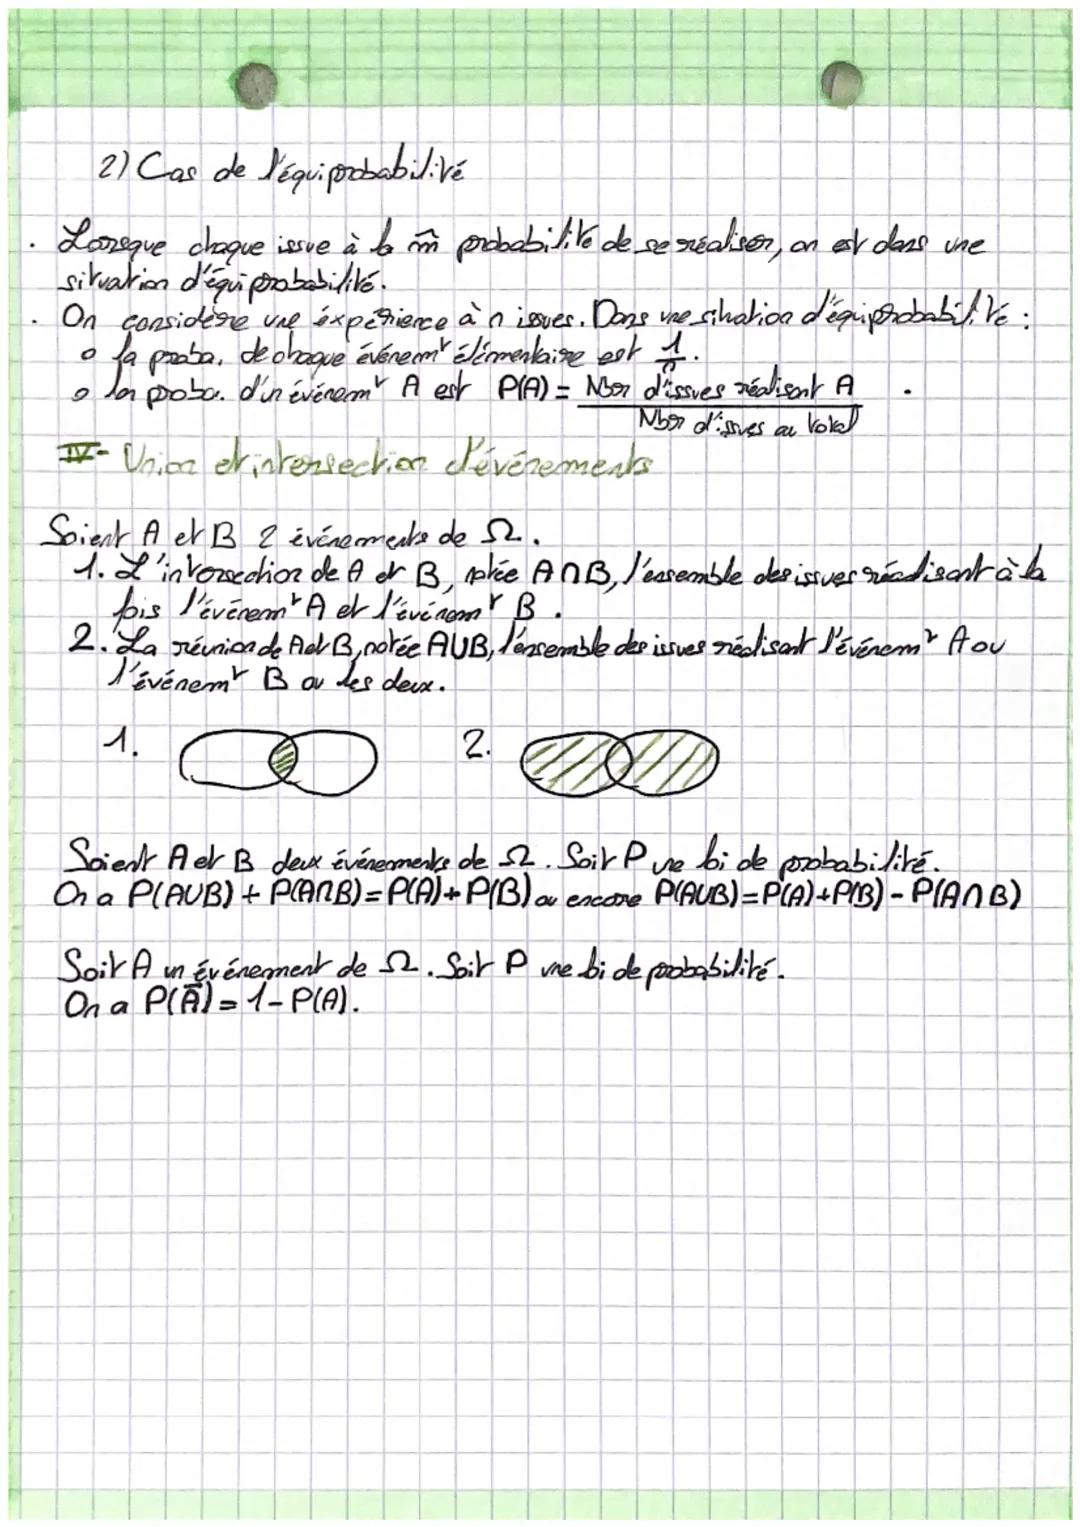 2) Cas de l'équiprobabilité
. Lorsque chaque issue à la m̂ probabilité de se réaliser, on est dans une
situation d'équiprobabilité.
. On considère une éxpérience à n issues. Dans une situation d'équiprobabilité :
o la proba. de chaque événemᵗ élémentaire est 1/n.
o la proba. d'un événemᵗ A est P(A) = Nbr d'issues réalisant A / Nbr d'issues au total .
IV- Union et intersection d'événements
Soient A et B 2 événements de Ω.
1. L'intersection de A et B, notée A∩B, l'ensemble des issues réalisant à la
fois l'événemᵗ A et l'événemᵗ B.
2. La réunion de A et B, notée A∪B, l'ensemble des issues réalisant l'événemᵗ A ou
l'événemᵗ B ou les deux.
1. 2.
Soient A et B deux événements de Ω. Soit P une loi de probabilité.
On a P(A∪B) + P(A∩B) = P(A) + P(B) ou encore P(A∪B) = P(A) + P(B) - P(A∩B)
Soit A un événement de Ω. Soit P une loi de probabilité.
On a P(Ā) = 1 - P(A).